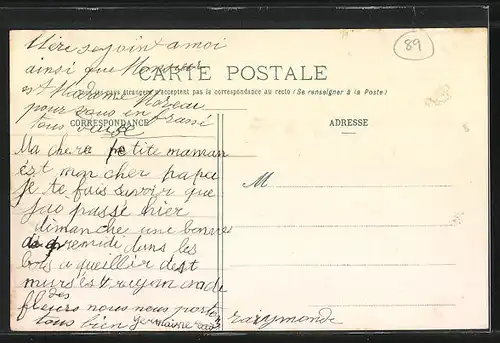 Mère se joint a moi
ainsi que Monsieur
et Madame Moreau
pour vous embrassé
tous
89
CARTE POSTALE
pays étrangers n'acceptent pas la correspondance au recto (Se renseigner à la Poste)
CORRESPONDANCE
ADRESSE
M
Ma chere petite maman
ést mon cher papa
je te fais savoir que
jai passé hier
dimanche une bonne
apremidi dans les
bois a queillir dest
des
fleurs nous nous porton
tous bien germaine
raiymonde